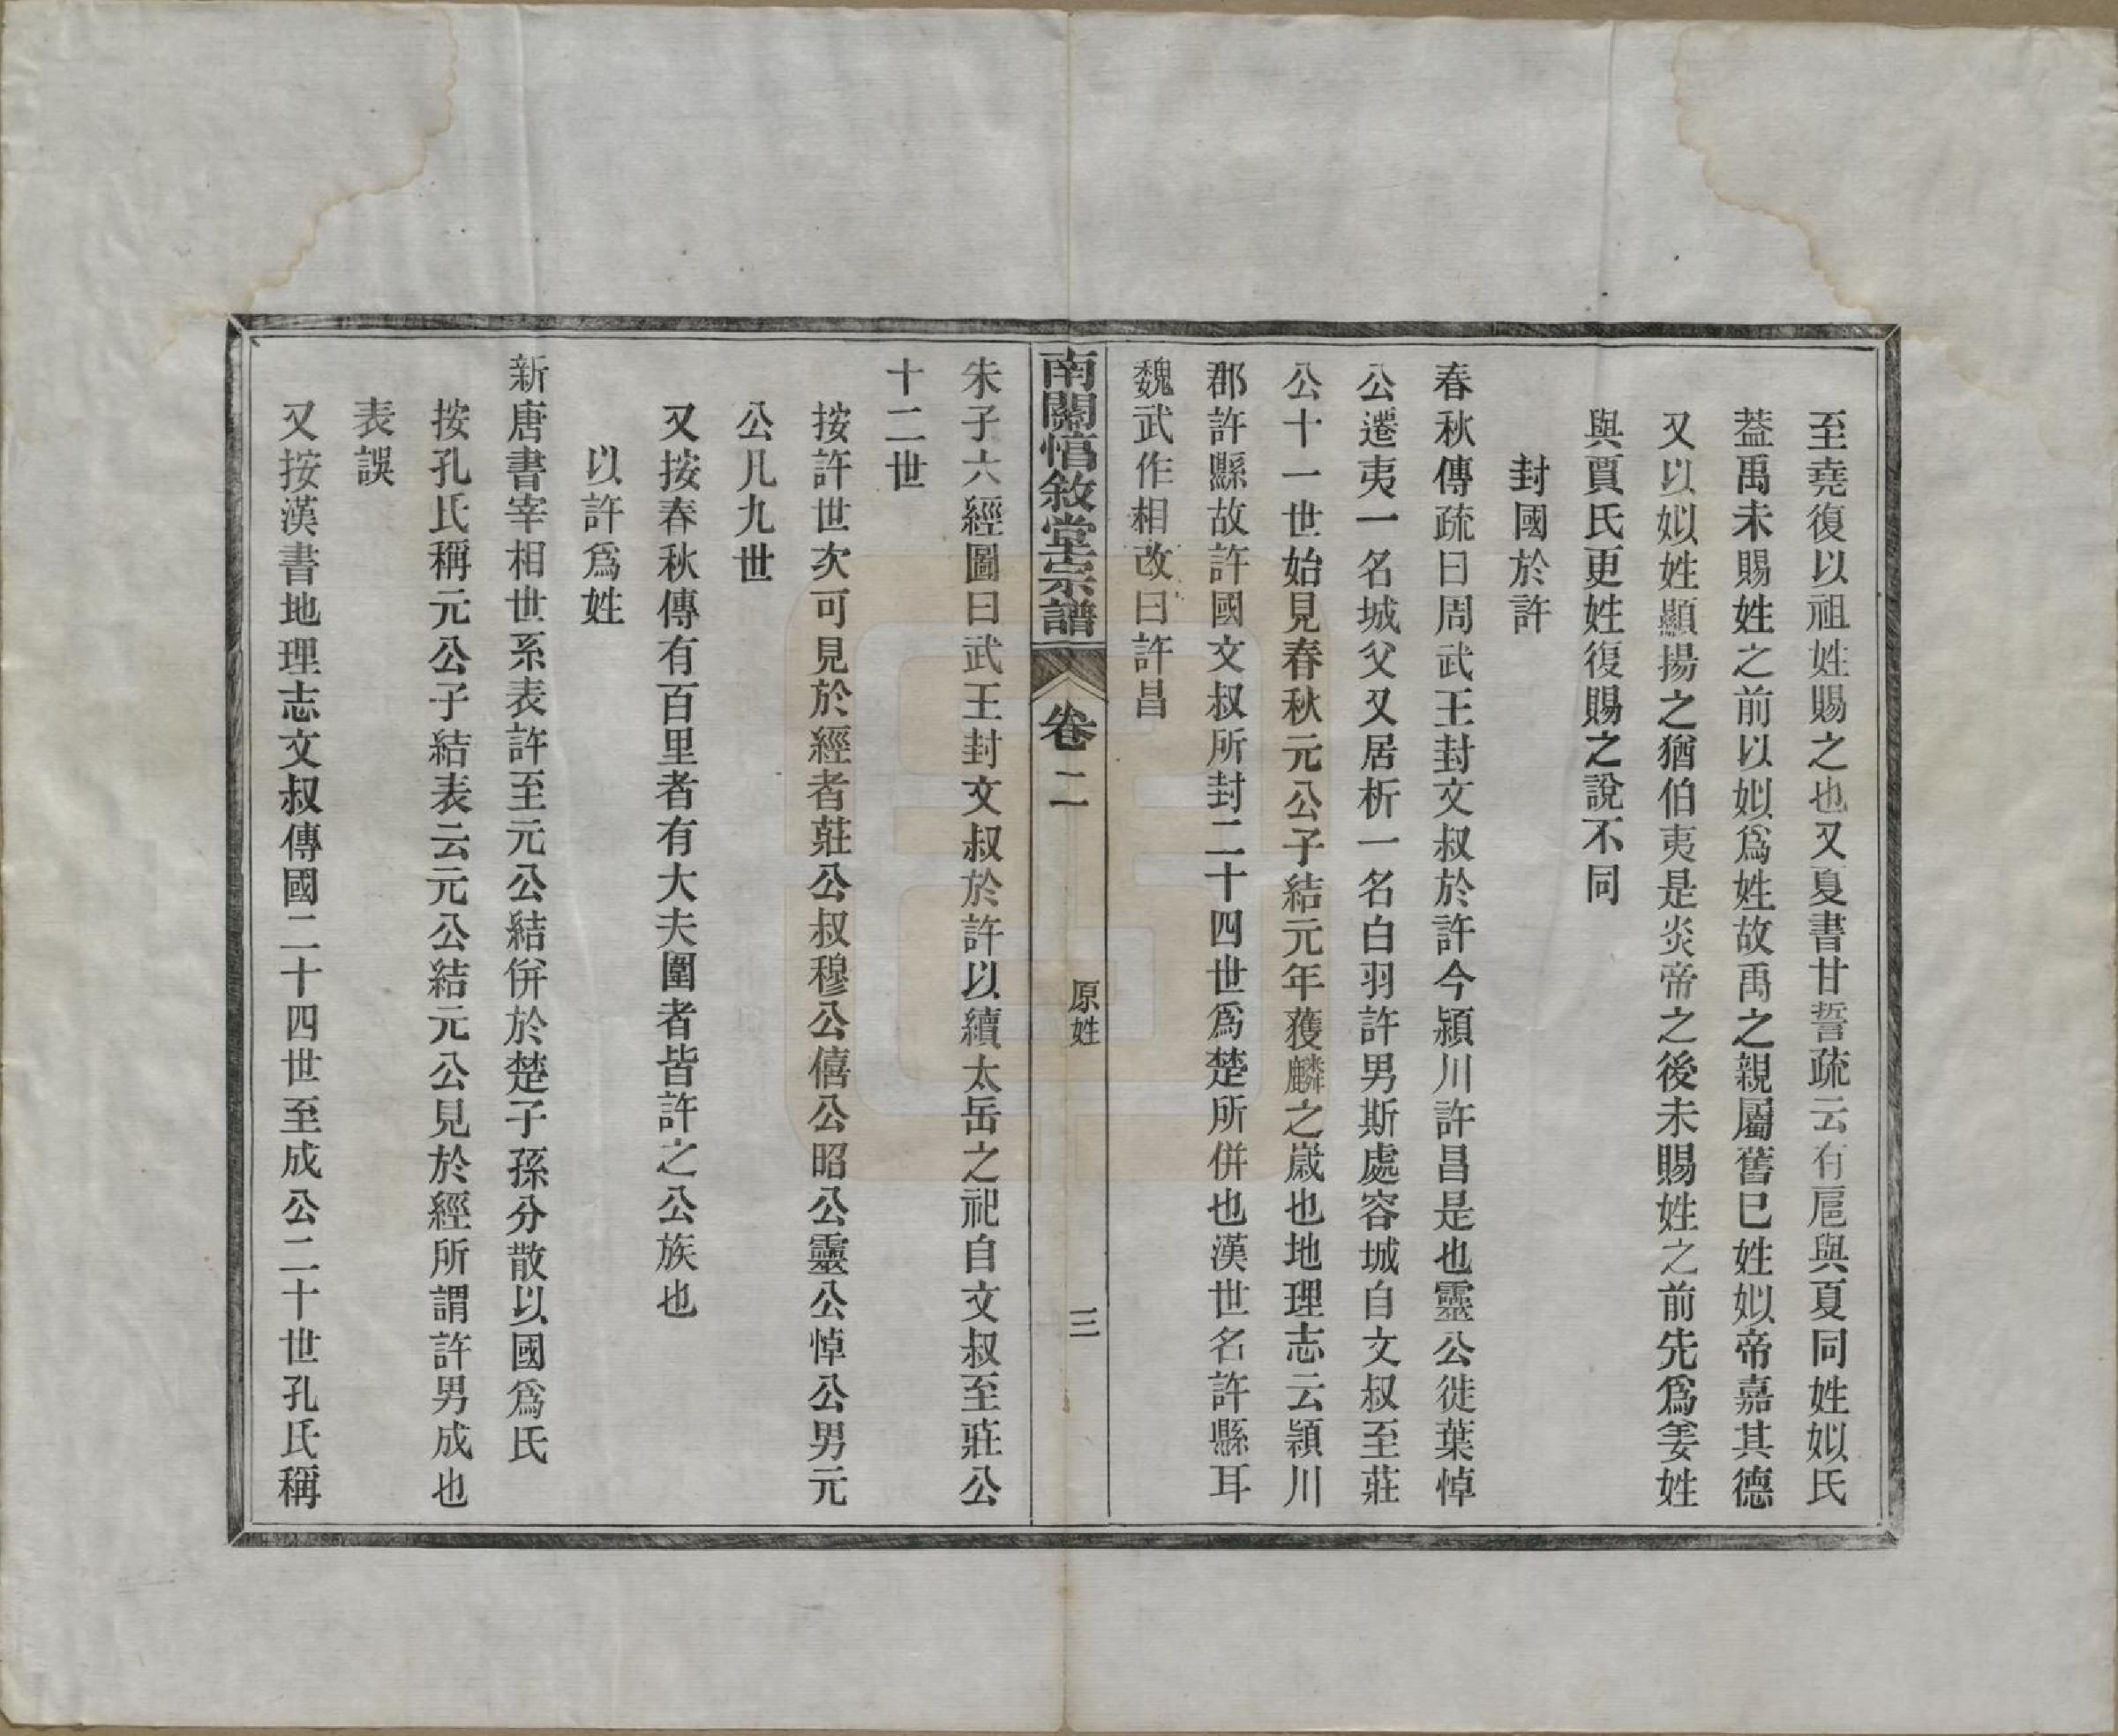 至堯復以祖姓賜之也又夏書甘誓疏云有扈與夏同姓姒氏
葢禹未賜姓之前以姒爲姓故禹之親屬舊巳姓姒帝嘉其德
又以姒姓顯揚之猶伯夷是炎帝之後未賜姓之前先爲姜姓
與賈氏更姓復賜之說不同
封國於許
春秋傳疏曰周武王封文叔於許今潁川許昌是也靈公徙葉悼
公遷夷一名城父又居析一名白羽許男斯處容城自文叔至莊
公十一世始見春秋元公子結元年獲麟之歲也地理志云潁川
郡許縣故許國文叔所封二十四世爲楚所併也漢世名許縣耳
魏武作相改曰許昌
南關惇敘堂宗譜
卷二
原姓
三
朱子六經圖曰武王封文叔於許以續太岳之祀自文叔至莊公
十二世
按許世次可見於經者莊公叔穆公僖公昭公靈公悼公男元
公凡九世
又按春秋傳有百里者有大夫圍者皆許之公族也
以許爲姓
新唐書宰相世系表許至元公結併於楚子孫分散以國爲氏
按孔氏稱元公子結表云元公結元公見於經所謂許男成也
表誤
又按漢書地理志文叔傳國二十四世至成公二十世孔氏稱